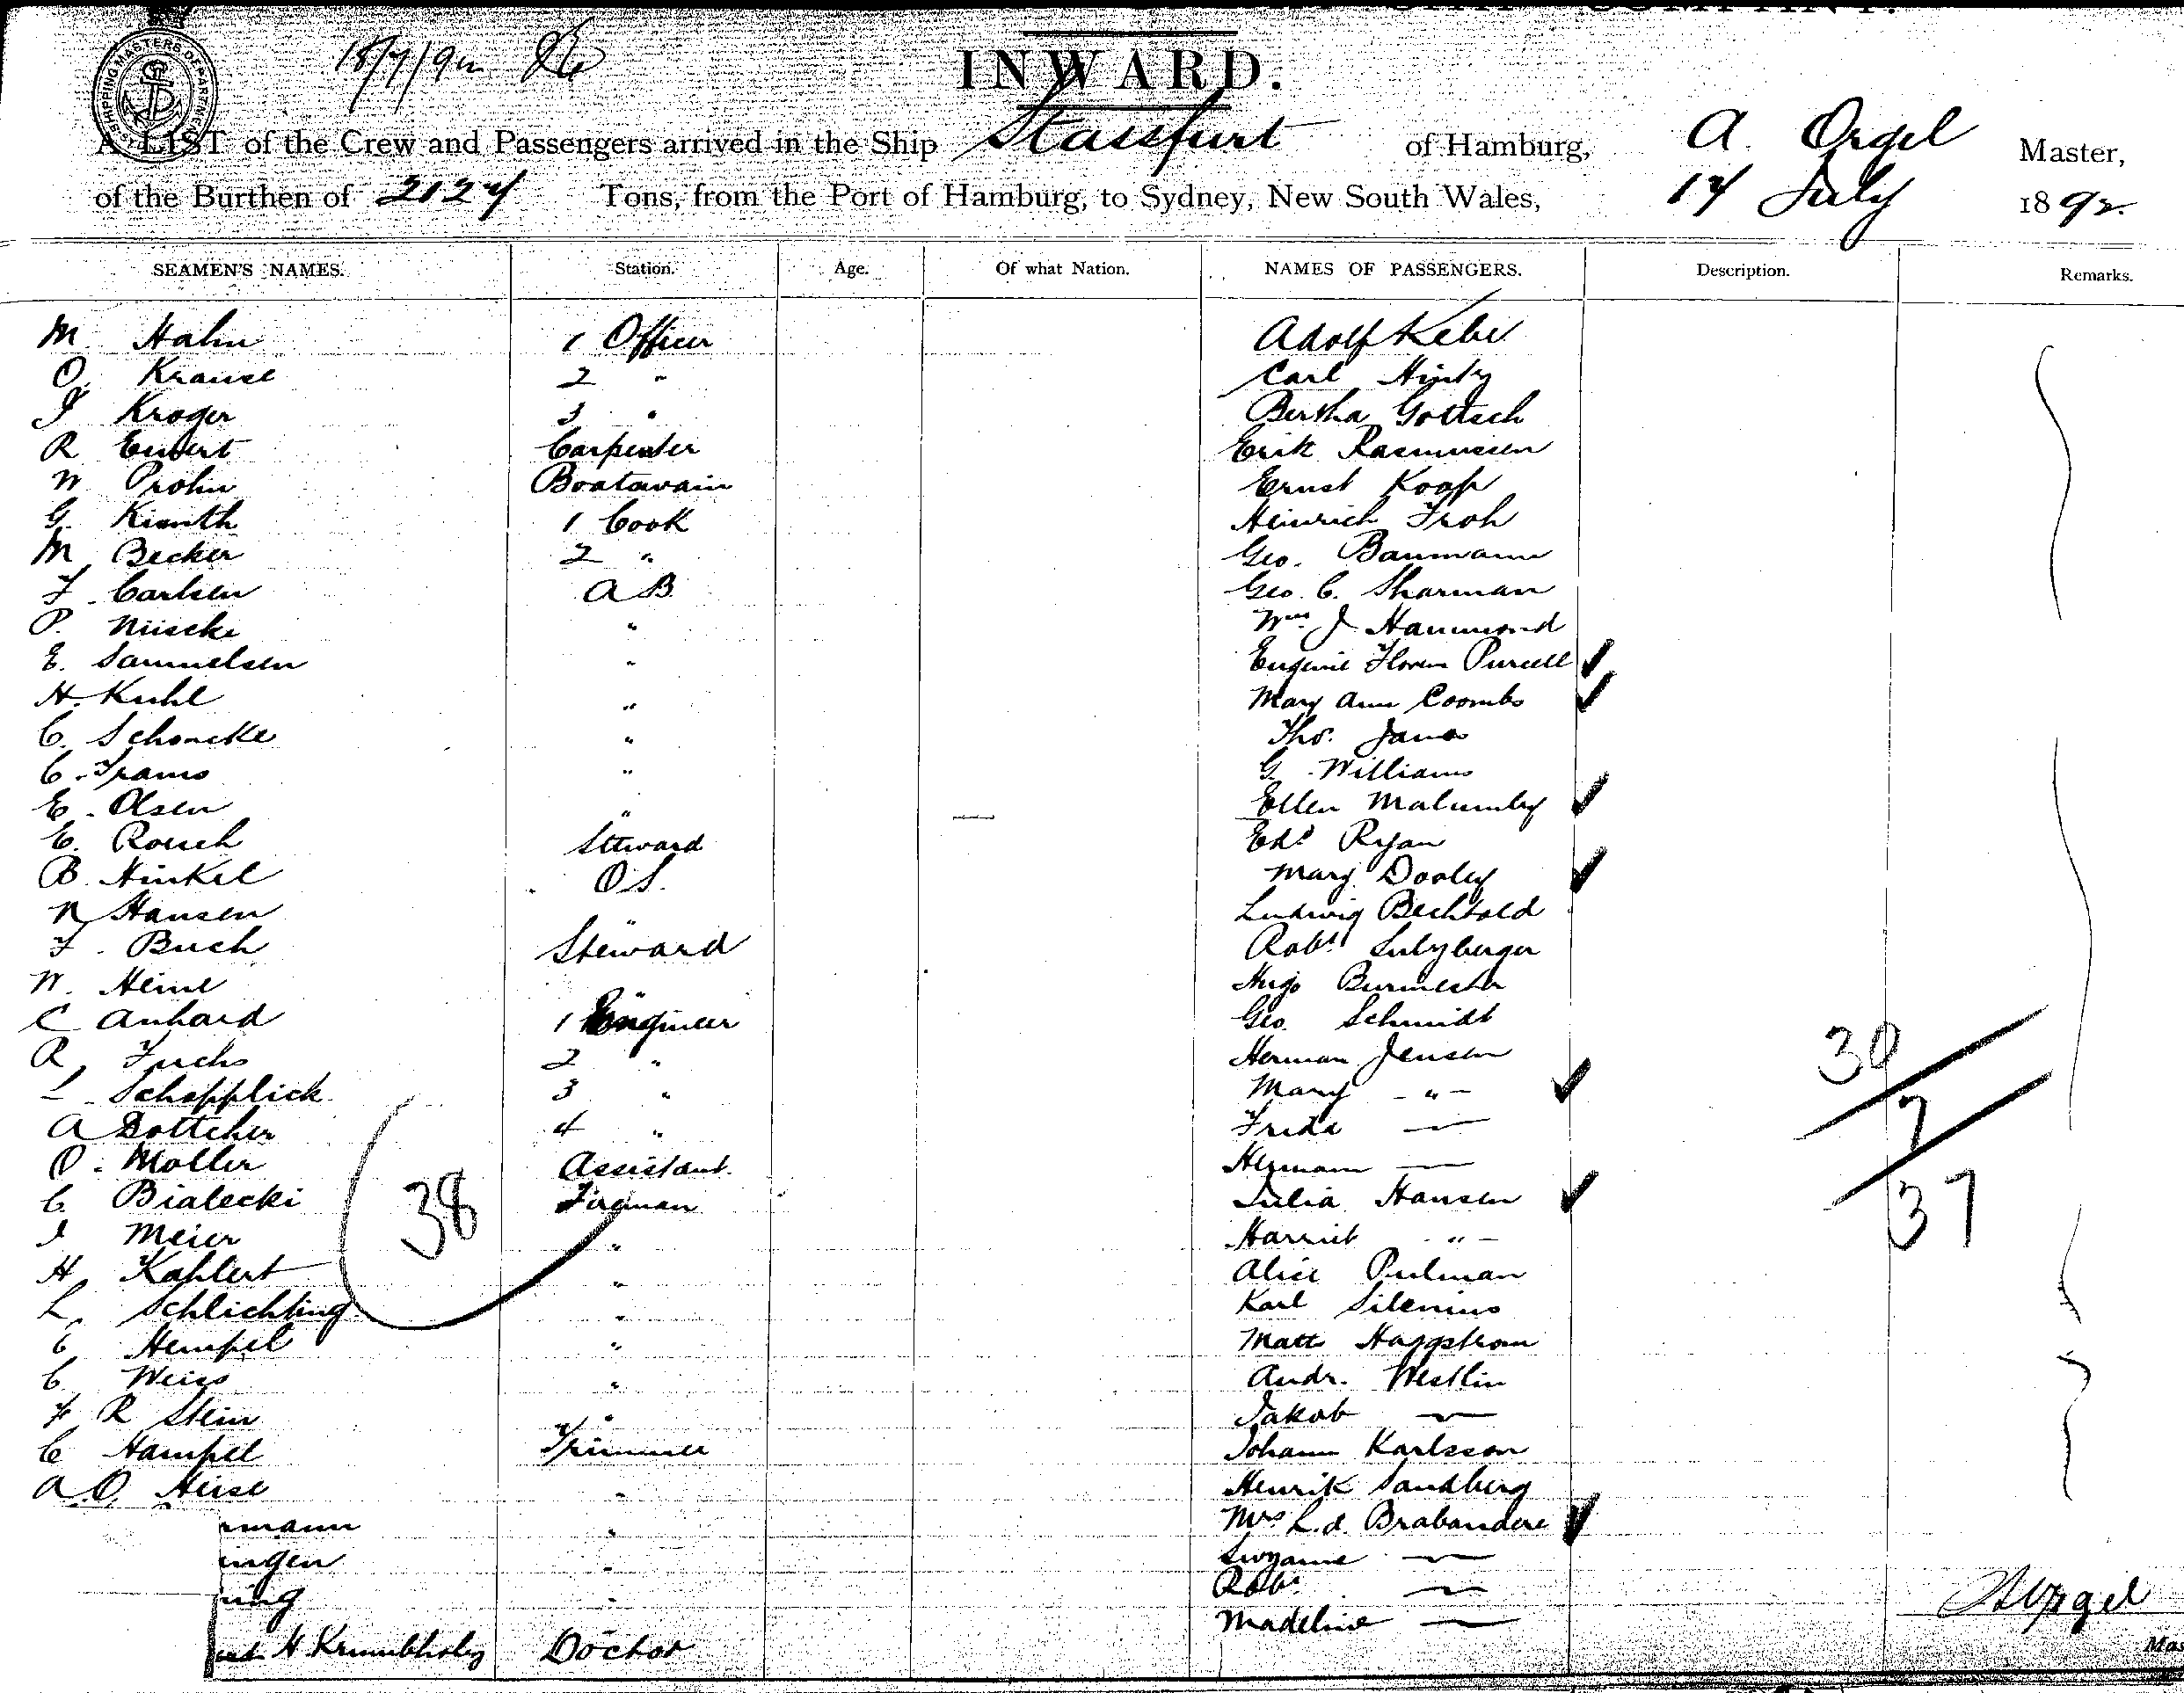 INWARD.
SHIPPING MASTERS DEPARTMENT
18/7/92
A LIST of the Crew and Passengers arrived in the Ship Stassfurt of Hamburg, A. Orgel Master,
of the Burthen of 2124 Tons, from the Port of Hamburg, to Sydney, New South Wales, 14 July 1892.
SEAMEN'S NAMES. Station. Age. Of what Nation. NAMES OF PASSENGERS. Description. Remarks.
M Hahn 1 Officer Adolf Kebe
O. Krause 2 " Carl Hintz
J Kroger 3 " Bertha Gottsch
R Carpenter Erik Rasmussen
W Prohn Boatswain Ernst Koop
G. 1 Cook Heinrich Froh
M Becker 2 " Geo. Baumann
F. Carlsen A B Geo. C. Sharman
P. Nüscke " Wm J Hammond
E. Samuelsen " Eugenie Floren Purcell
H. Kuhl " Mary Ann Coombs
C. Schoncke " Thos. James
C. Trams " G. Williams
E. Olsen " Ellen Malumby
E. Roesch Steward Edd Ryan
B. Hinkel O S. Mary Dooley
N Hansen " Ludwig Bechtold
F. Buch Steward Robt Sulzberger
W. Heine " Hugo Burmester
C Anhard 1 Engineer Geo. Schmidt
R. Fuchs 2 " Herman Jensen
L. Schopplick 3 " Mary - " -
A Bottcher 4 " Frida —
O. Moller Assistant. Hermann —
C. Bialecki Fireman Julia Hansen
I Meier " Harriet - " -
H. Kahlert " Alice Pulman
L. Schlichting " Karl Silenius
E Hempel " Matts Haggstrom
C. Weiss " Andr. Westlin
F R Stein " Jakob —
C Hampel Trimmer Johann Karlsson
A. O. Heise " Henrik Sandberg
rmann " Mrs L. d. Brabandere
ingen " Suzanne —
ning " Robt —
H Krumbholz Doctor Madeline —
38
30
7
37
A Orgel
Mas